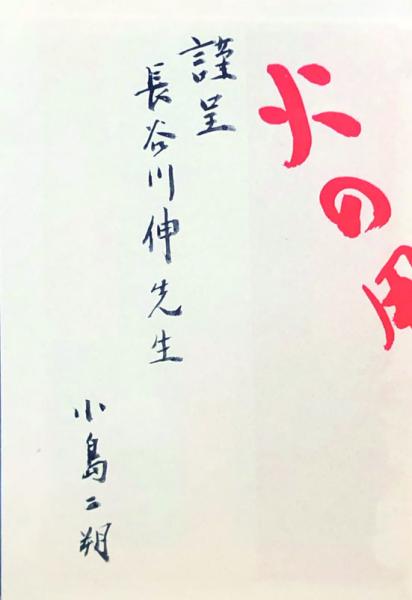 火の用
謹呈
長谷川伸先生
小島二朔